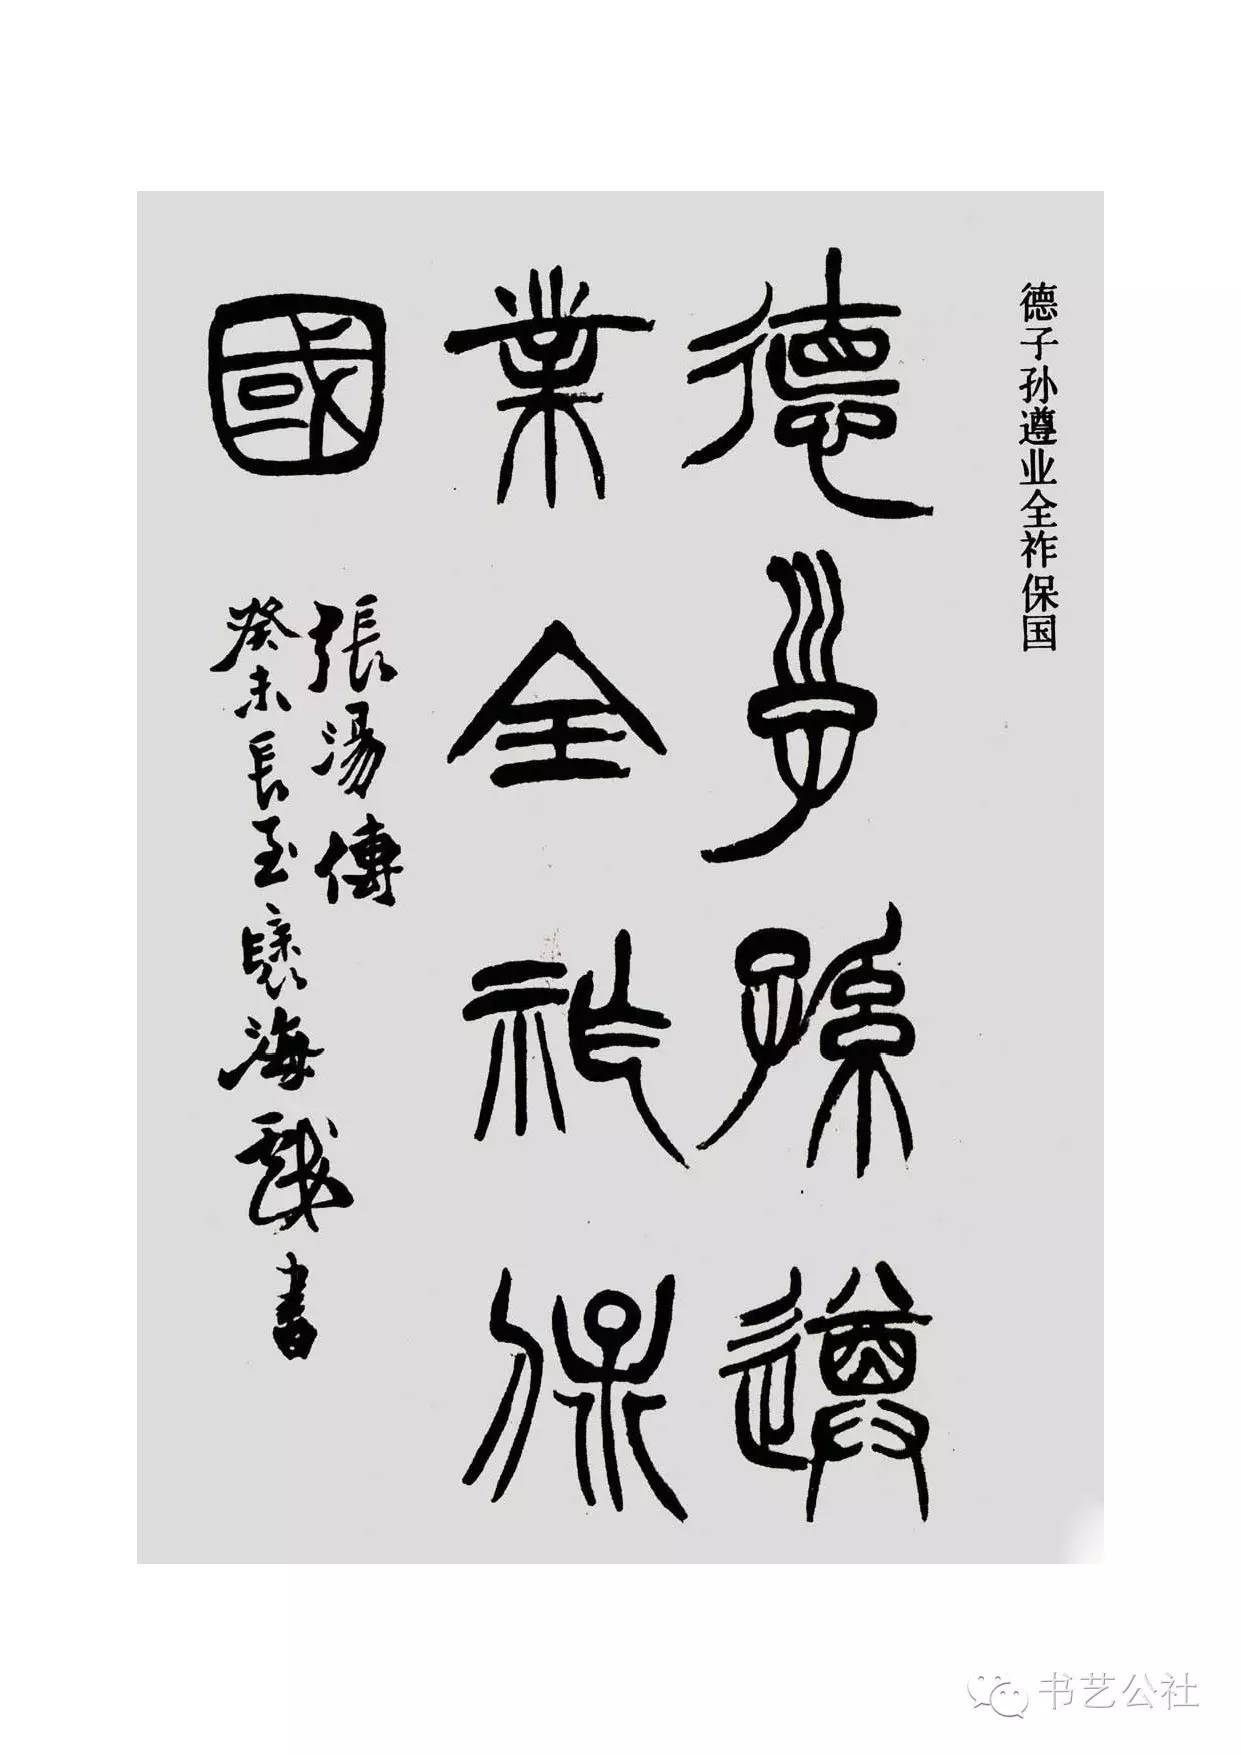 德子孙遵业全祚保国
德子孫遵
業全祚保
國
張湯傳
癸未長至褱海戲書
书艺公社